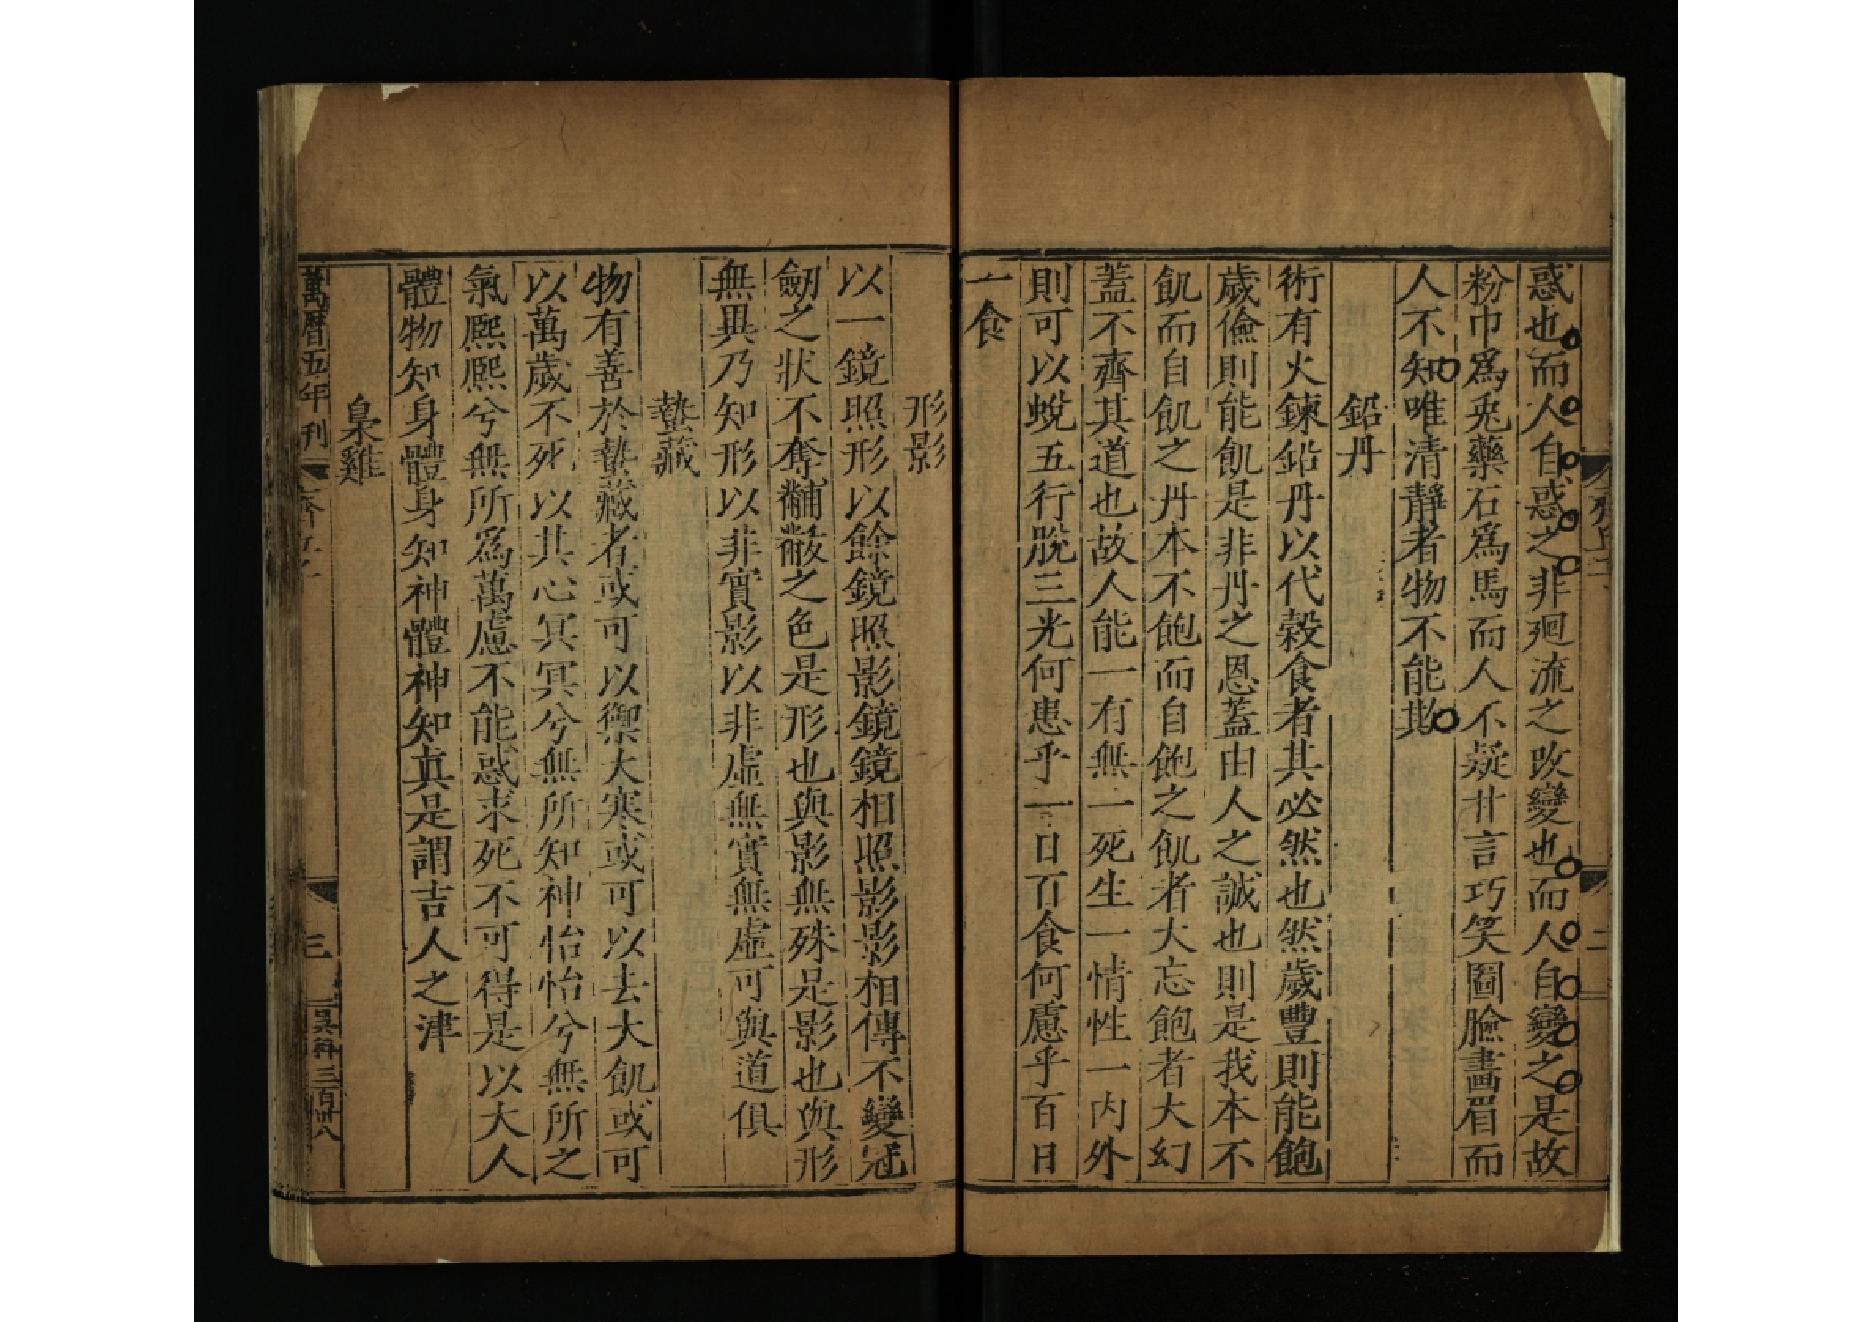 惑也而人自惑之非廻流之改變也而人自變之是故
粉巾爲兎藥石爲馬而人不疑甘言巧笑圖臉畫眉而
人不知唯清靜者物不能欺
鉛丹
術有火鍊鉛丹以代穀食者其必然也然歲豐則能飽
歲儉則能飢是非丹之恩蓋由人之誠也則是我本不
飢而自飢之丹本不飽而自飽之飢者大忘飽者大幻
蓋不齊其道也故人能一有無一死生一情性一内外
則可以蛻五行脫三光何患乎一日百食何慮乎百日
一食
形影
以一鏡照形以餘鏡照影鏡鏡相照影影相傳不變冠
劒之狀不奪黼黻之色是形也與影無殊是影也與形
無異乃知形以非實影以非虛無實無虛可與道俱
蟄藏
物有善於蟄藏者或可以禦大寒或可以去大飢或可
以萬歲不死以其心冥冥兮無所知神怡怡兮無所之
氣熈熈兮無所爲萬慮不能惑求死不可得是以大人
體物知身體身知神體神知真是謂吉人之津
梟雞
萬曆五年刊
三